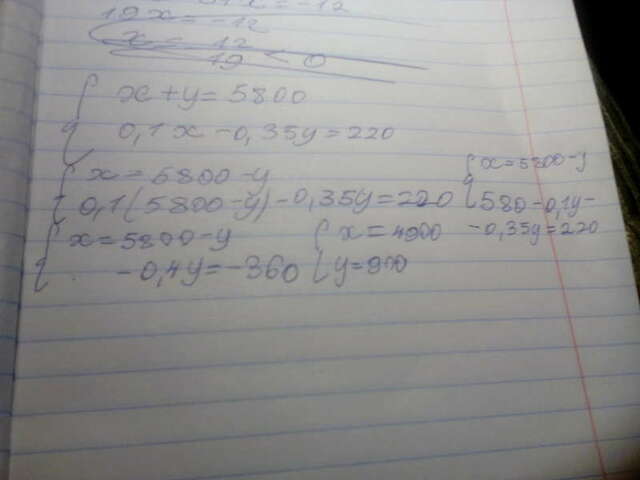 19x = -12
x = -12
19 < 0
x + y = 5800
0,1x - 0,35y = 220
x = 5800 - y
0,1(5800 - y) - 0,35y = 220
x = 5800 - y
580 - 0,1y -
- 0,35y = 220
x = 5800 - y
- 0,4y = -360
x = 4900
y = 900